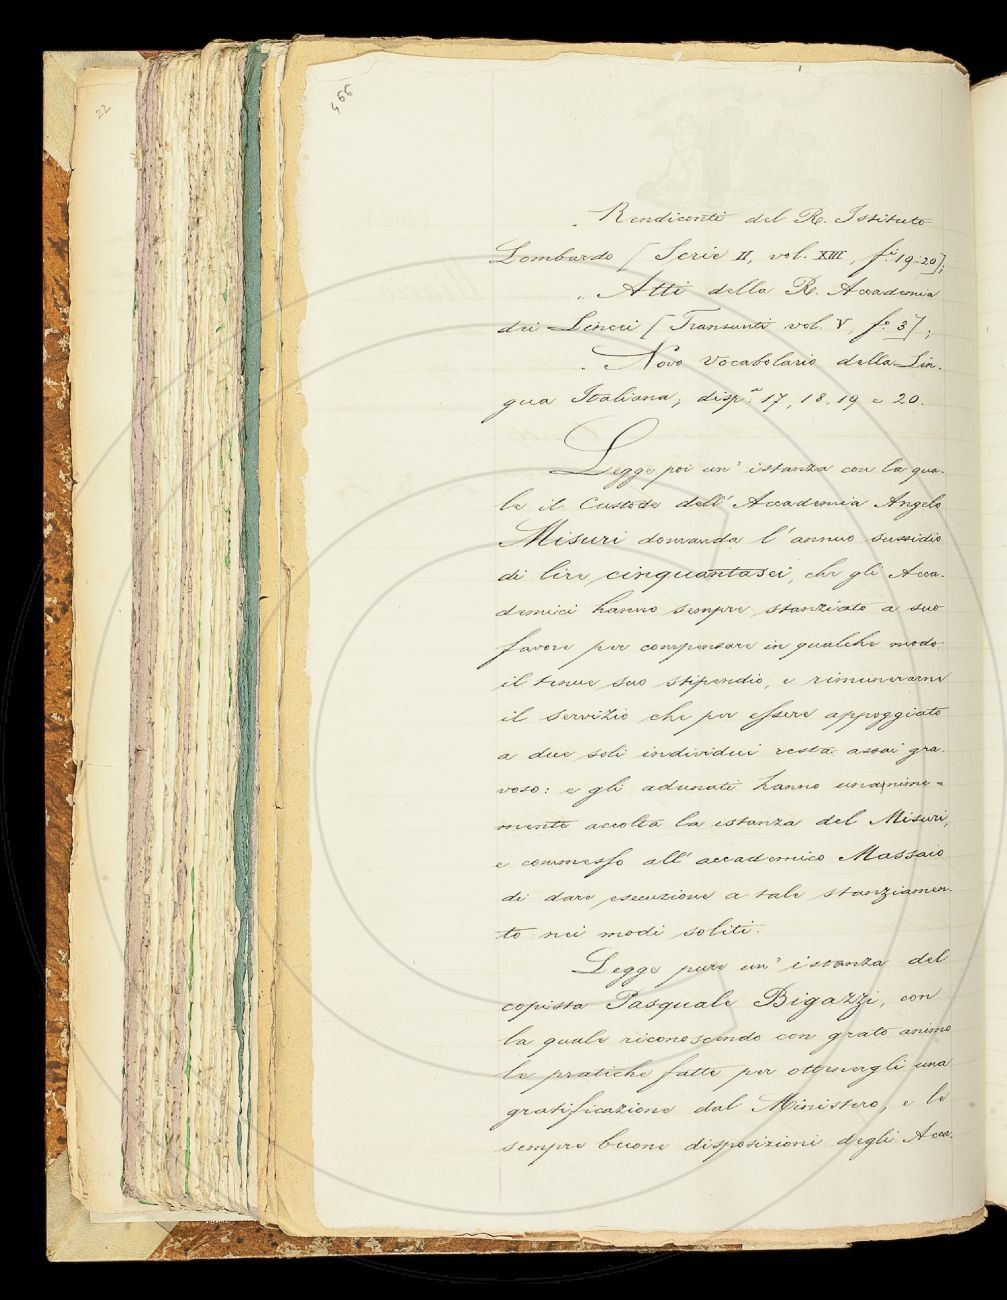 22
466
Rendiconti del R. Istituto
Lombardo [Serie II, vol. XIII, fi. 19-20];
Atti della R. Accademia
dei Lincei [Transunti vol. V, fo. 3];
Novo Vocabolario della Lin-
gua Italiana, disp.e 17, 18, 19 e 20.
Legge poi un' istanza con la qua-
le il Custode dell' Accademia Angelo
Misuri domanda l' annuo sussidio
di lire cinquantasei, che gli Acca-
demici hanno sempre stanziato a suo
favore per compensare in qualche modo
il tenue suo stipendio, e rimunerarne
il servizio che per essere appoggiato
a due soli individui resta assai gra-
voso: e gli adunati hanno unanime-
mente accolta la istanza del Misuri,
e commesso all' accademico Massaio
di dare esecuzione a tale stanziamen-
to nei modi soliti.
Legge pure un' istanza del
copista Pasquale Bigazzi, con
la quale riconoscendo con grato animo
le pratiche fatte per ottenergli una
gratificazione dal Ministero, e le
sempre buone disposizioni degli Acca-